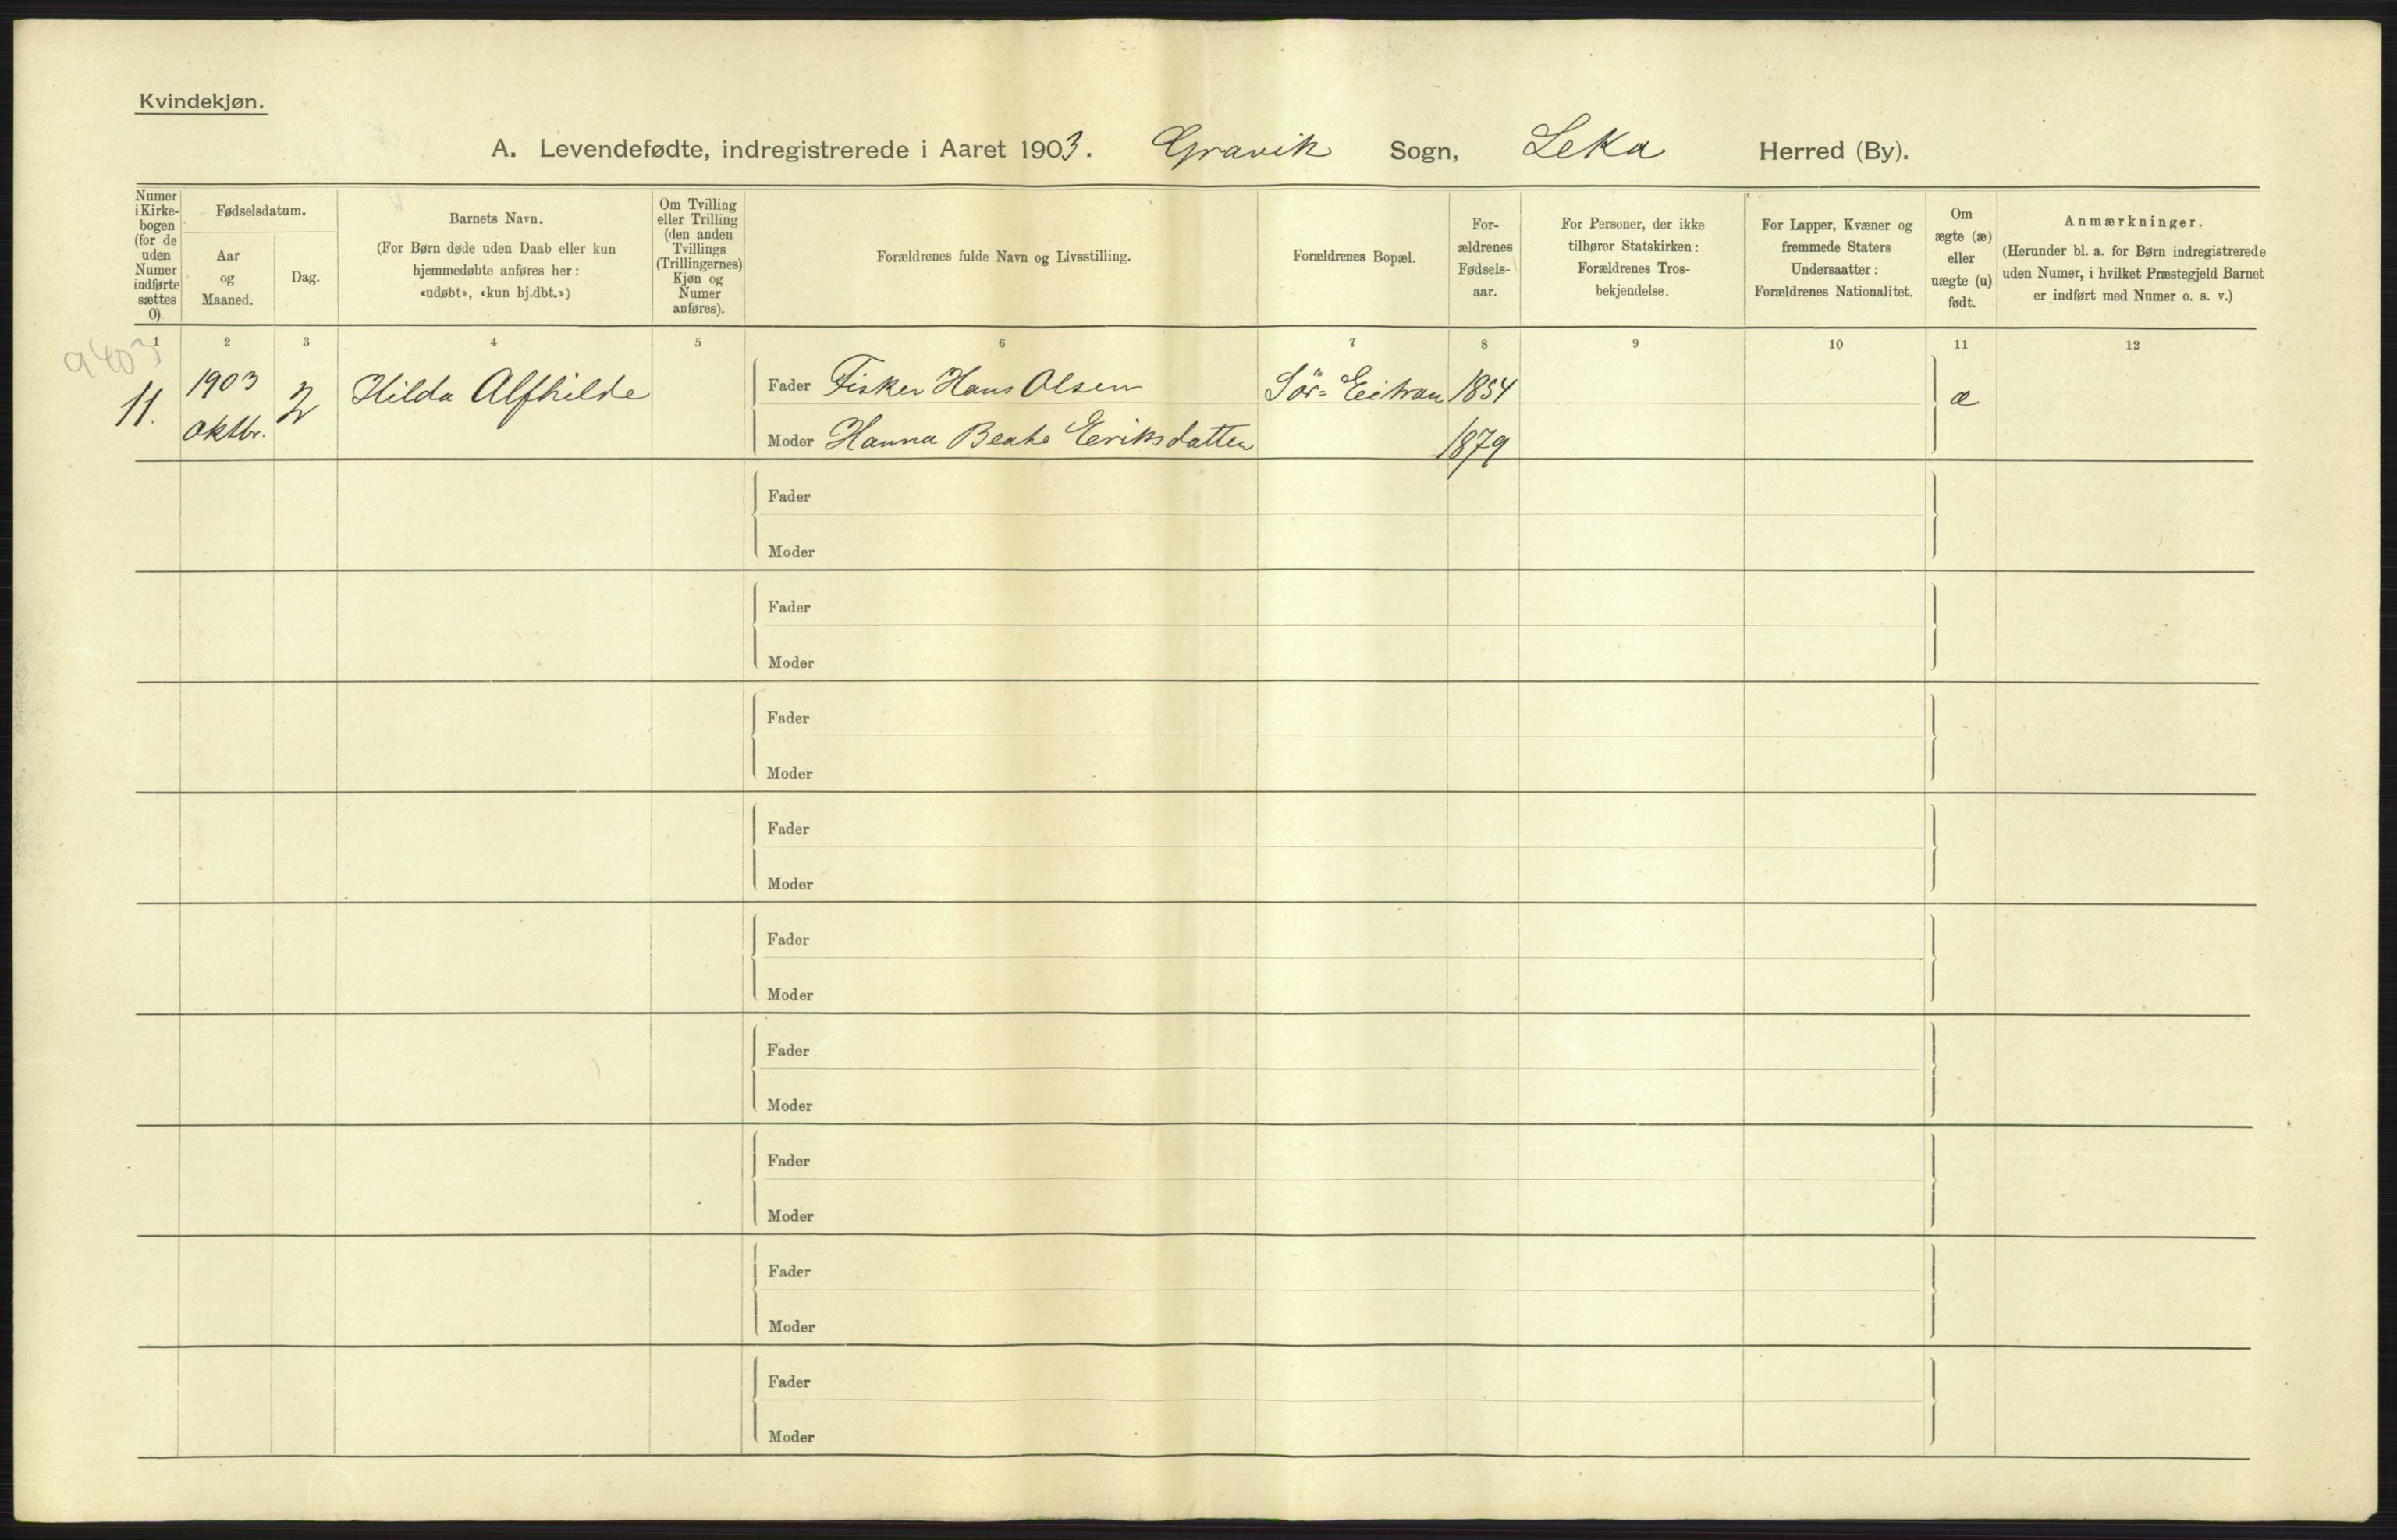 Kvindekjøn.
A. Levendefødte, indregistrerede i Aaret 1903. Gravik Sogn, Leka Herred (By).
Numer
i Kirke-
bogen
(for de
uden
Numer
indførte
sættes
0).
Fødselsdatum.
Aar
og
Maaned.
Dag.
Barnets Navn.
(For Børn døde uden Daab eller kun
hjemmedøbte anføres her:
«udøbt», «kun hj.dbt.»)
Om Tvilling
eller Trilling
(den anden
Tvillings
(Trillingernes)
Kjøn og
Numer
anføres).
Forældrenes fulde Navn og Livsstilling.
Forældrenes Bopæl.
For-
ældrenes
Fødsels-
aar.
For Personer, der ikke
tilhører Statskirken:
Forældrenes Tros-
bekjendelse.
For Lapper, Kvæner og
fremmede Staters
Undersaatter:
Forældrenes Nationalitet.
Om
ægte (æ)
eller
uægte (u)
født.
Anmærkninger.
(Herunder bl. a. for Børn indregistrerede
uden Numer, i hvilket Præstegjeld Barnet
er indført med Numer o. s. v.)
1 2 3 4 5 6 7 8 9 10 11 12
9403
11. 1903 2 Hilda Alfhilde Fader Fisker Hans Olsen Sör= 1854 æ
oktbr. Moder Hanna Beate Eeriksdatter 1879
Fader
Moder
Fader
Moder
Fader
Moder
Fader
Moder
Fader
Moder
Fader
Moder
Fader
Moder
Fader
Moder
Fader
Moder